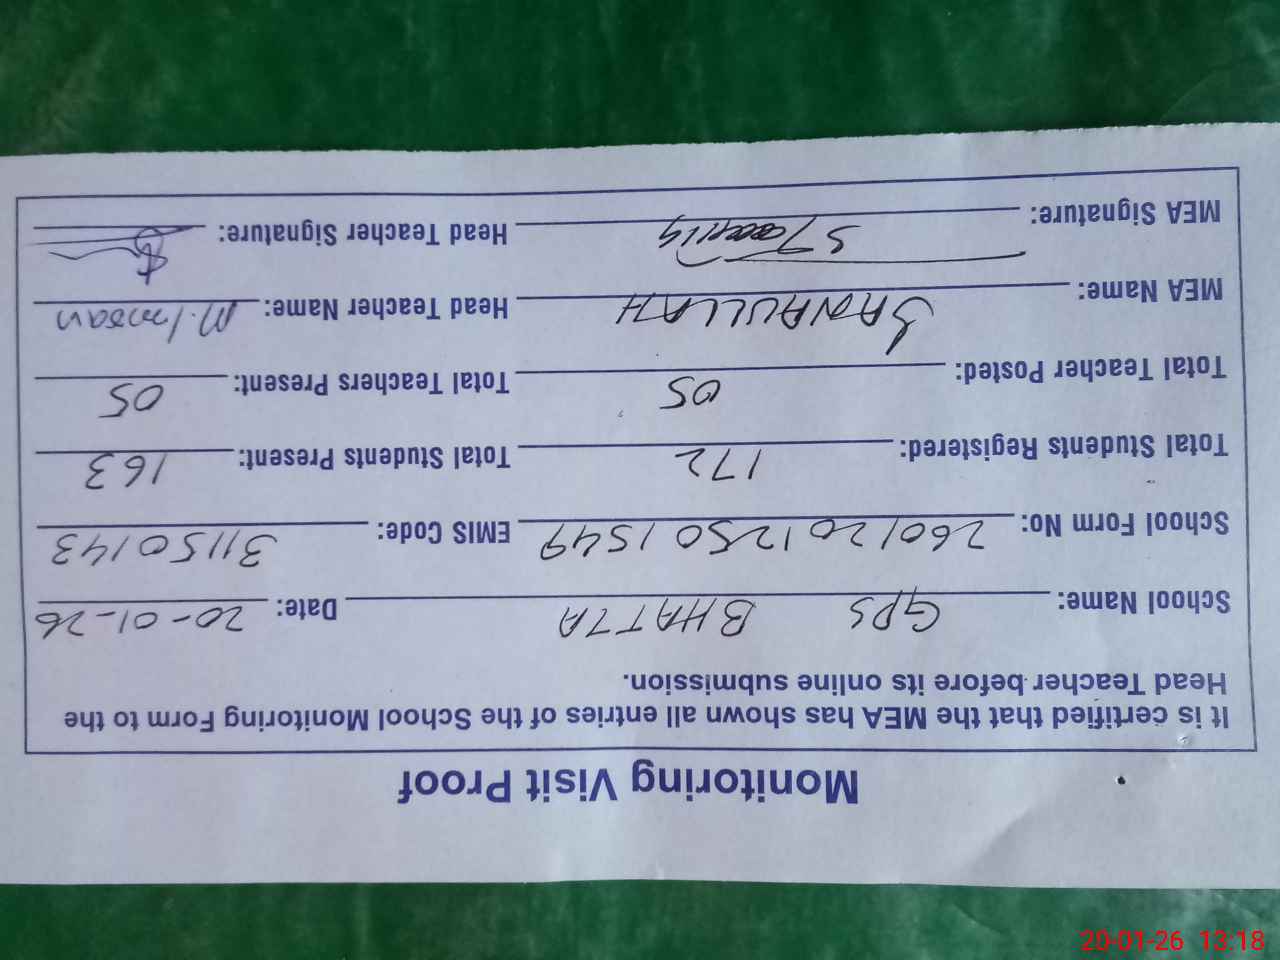 Monitoring Visit Proof
It is certified that the MEA has shown all entries of the School Monitoring Form to the
Head Teacher before its online submission.
School Name: GPS BHATTA Date: 20-01-26
School Form No: 26012012501549 EMIS Code: 31150143
Total Students Registered: 172 Total Students Present: 163
Total Teacher Posted: 05 Total Teachers Present: 05
MEA Name: SANAULLAH Head Teacher Name: M.Imran
MEA Signature: Head Teacher Signature:
20-01-26 13:18